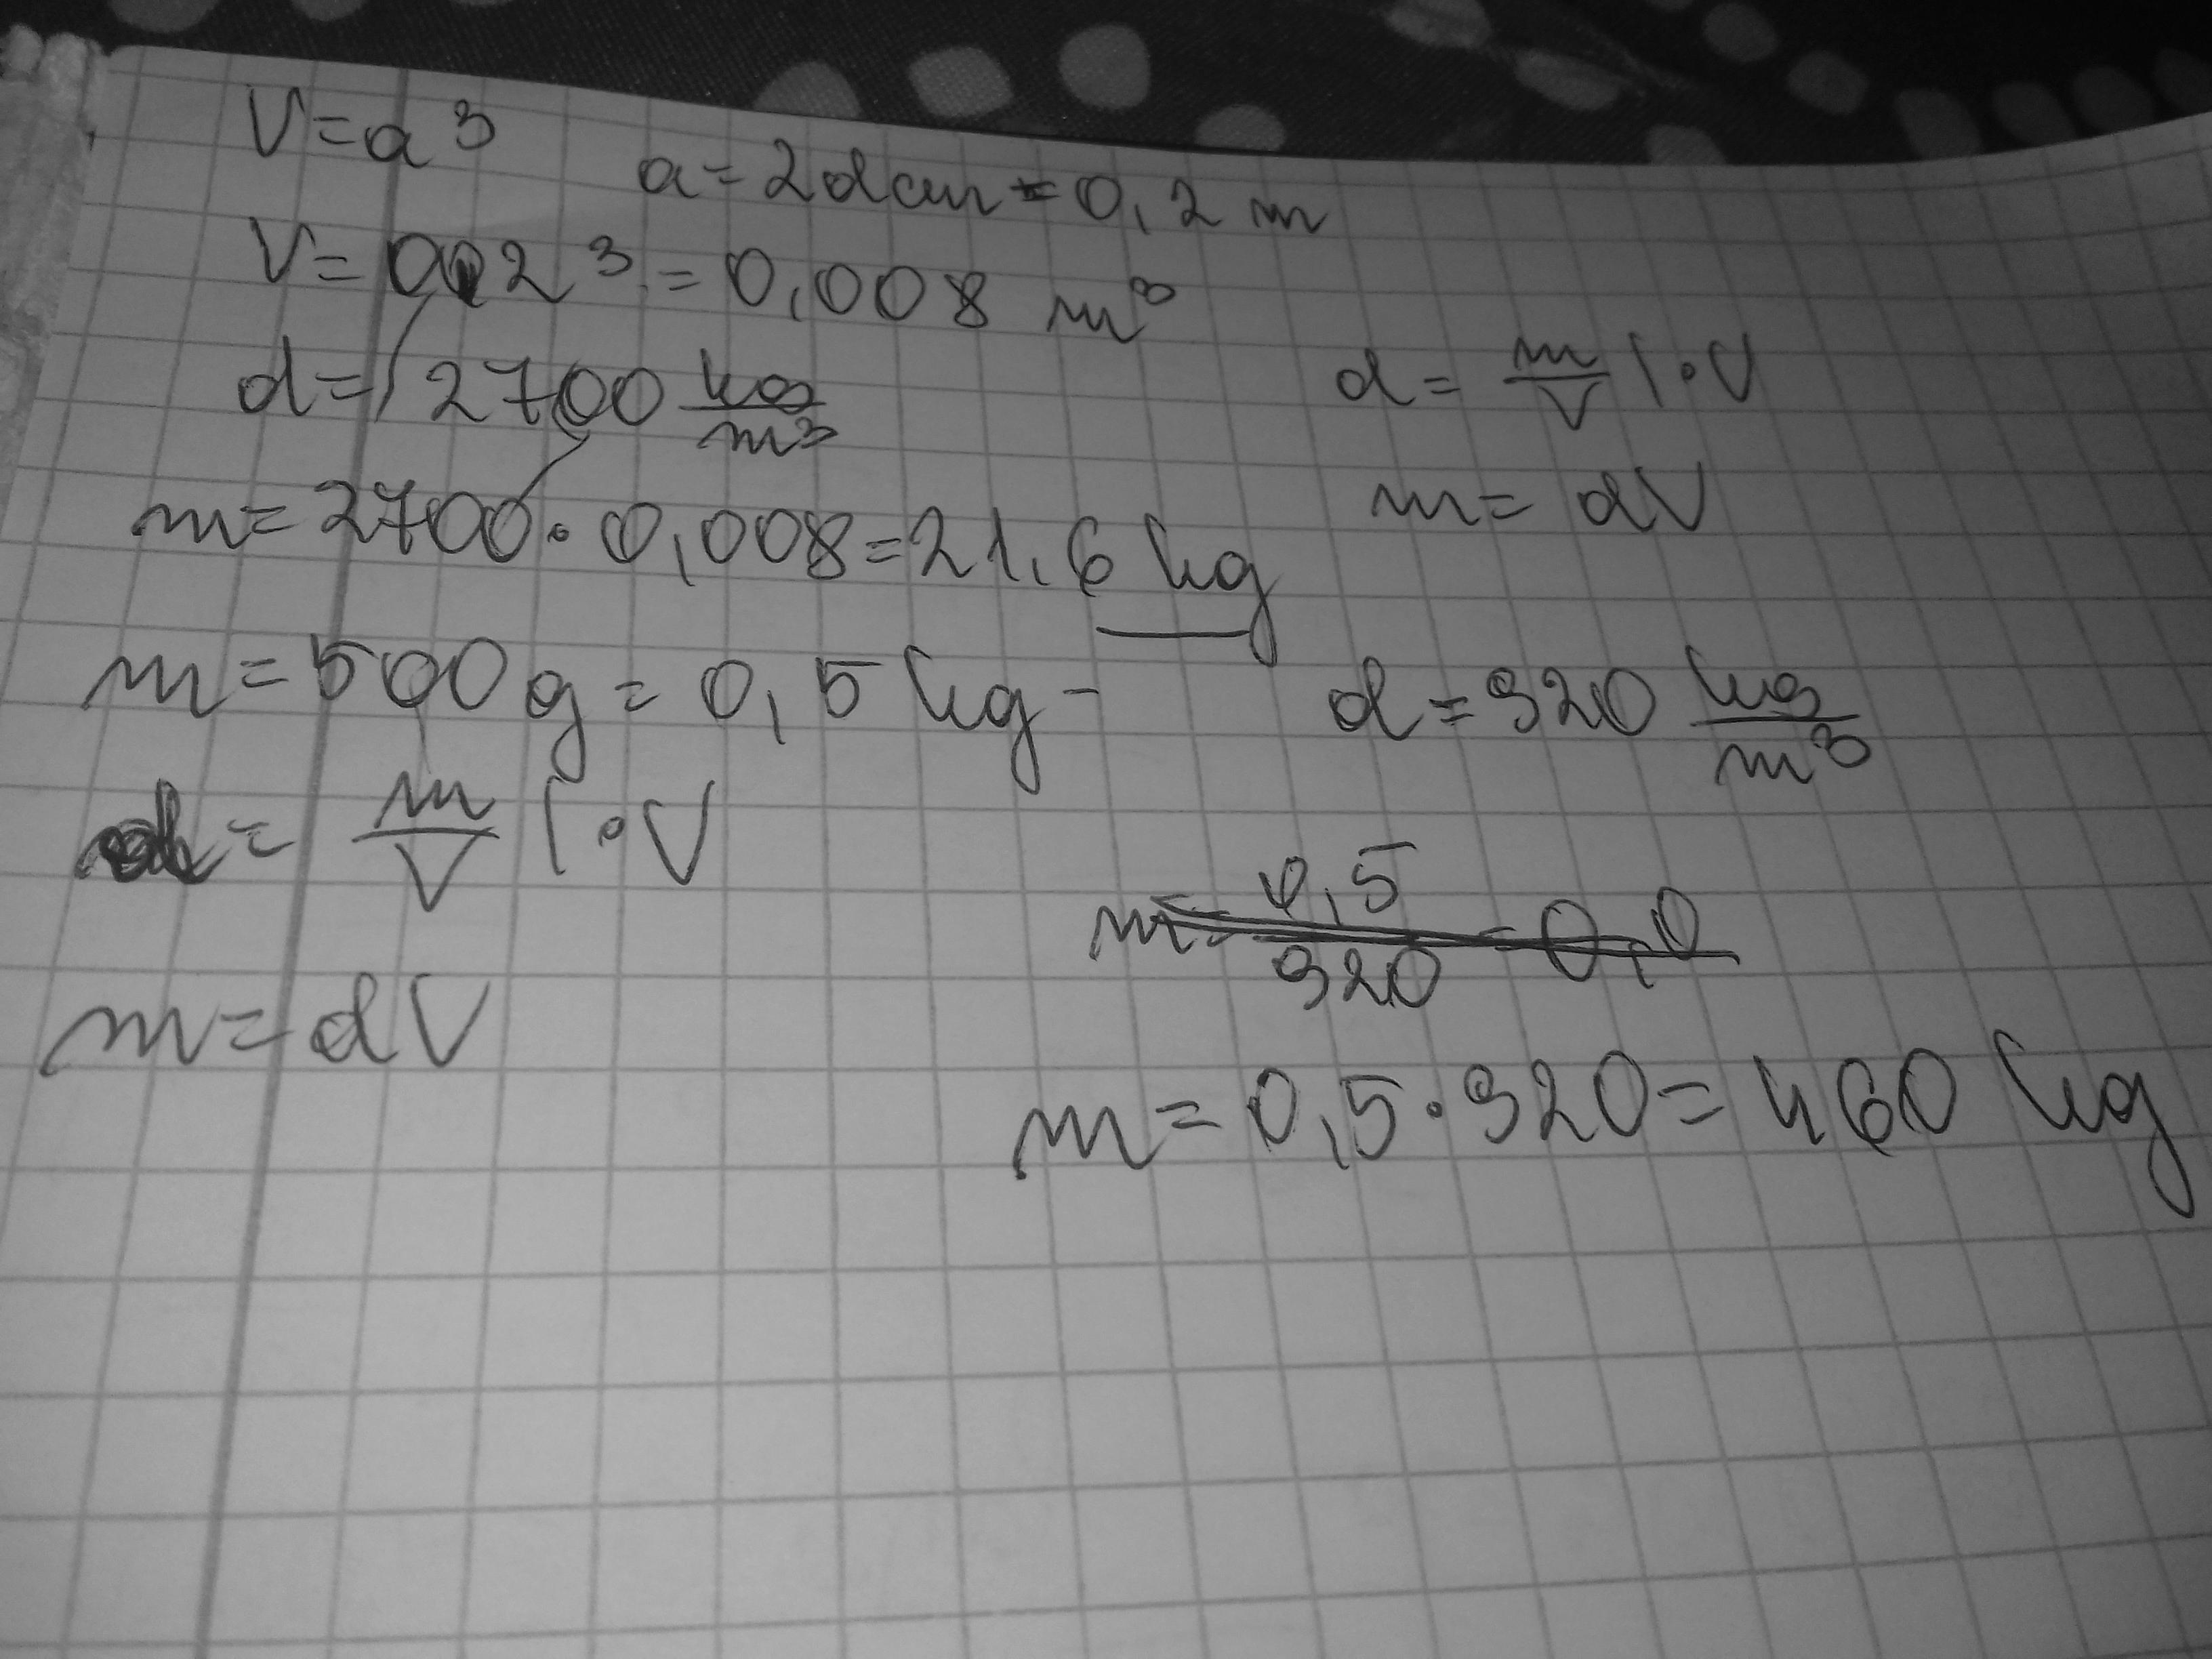 V=a³
a=2dcm=0,2 m
V=0,2³=0,008 m³
d=2700 kg/m³
d=m/V |·V
m=dV
m=2700·0,008=21,6 kg
m=500g=0,5kg-
d=920 kg/m³
d=m/V |·V
m=0,5/920=0,0
m=dV
m=0,5·920=460 kg